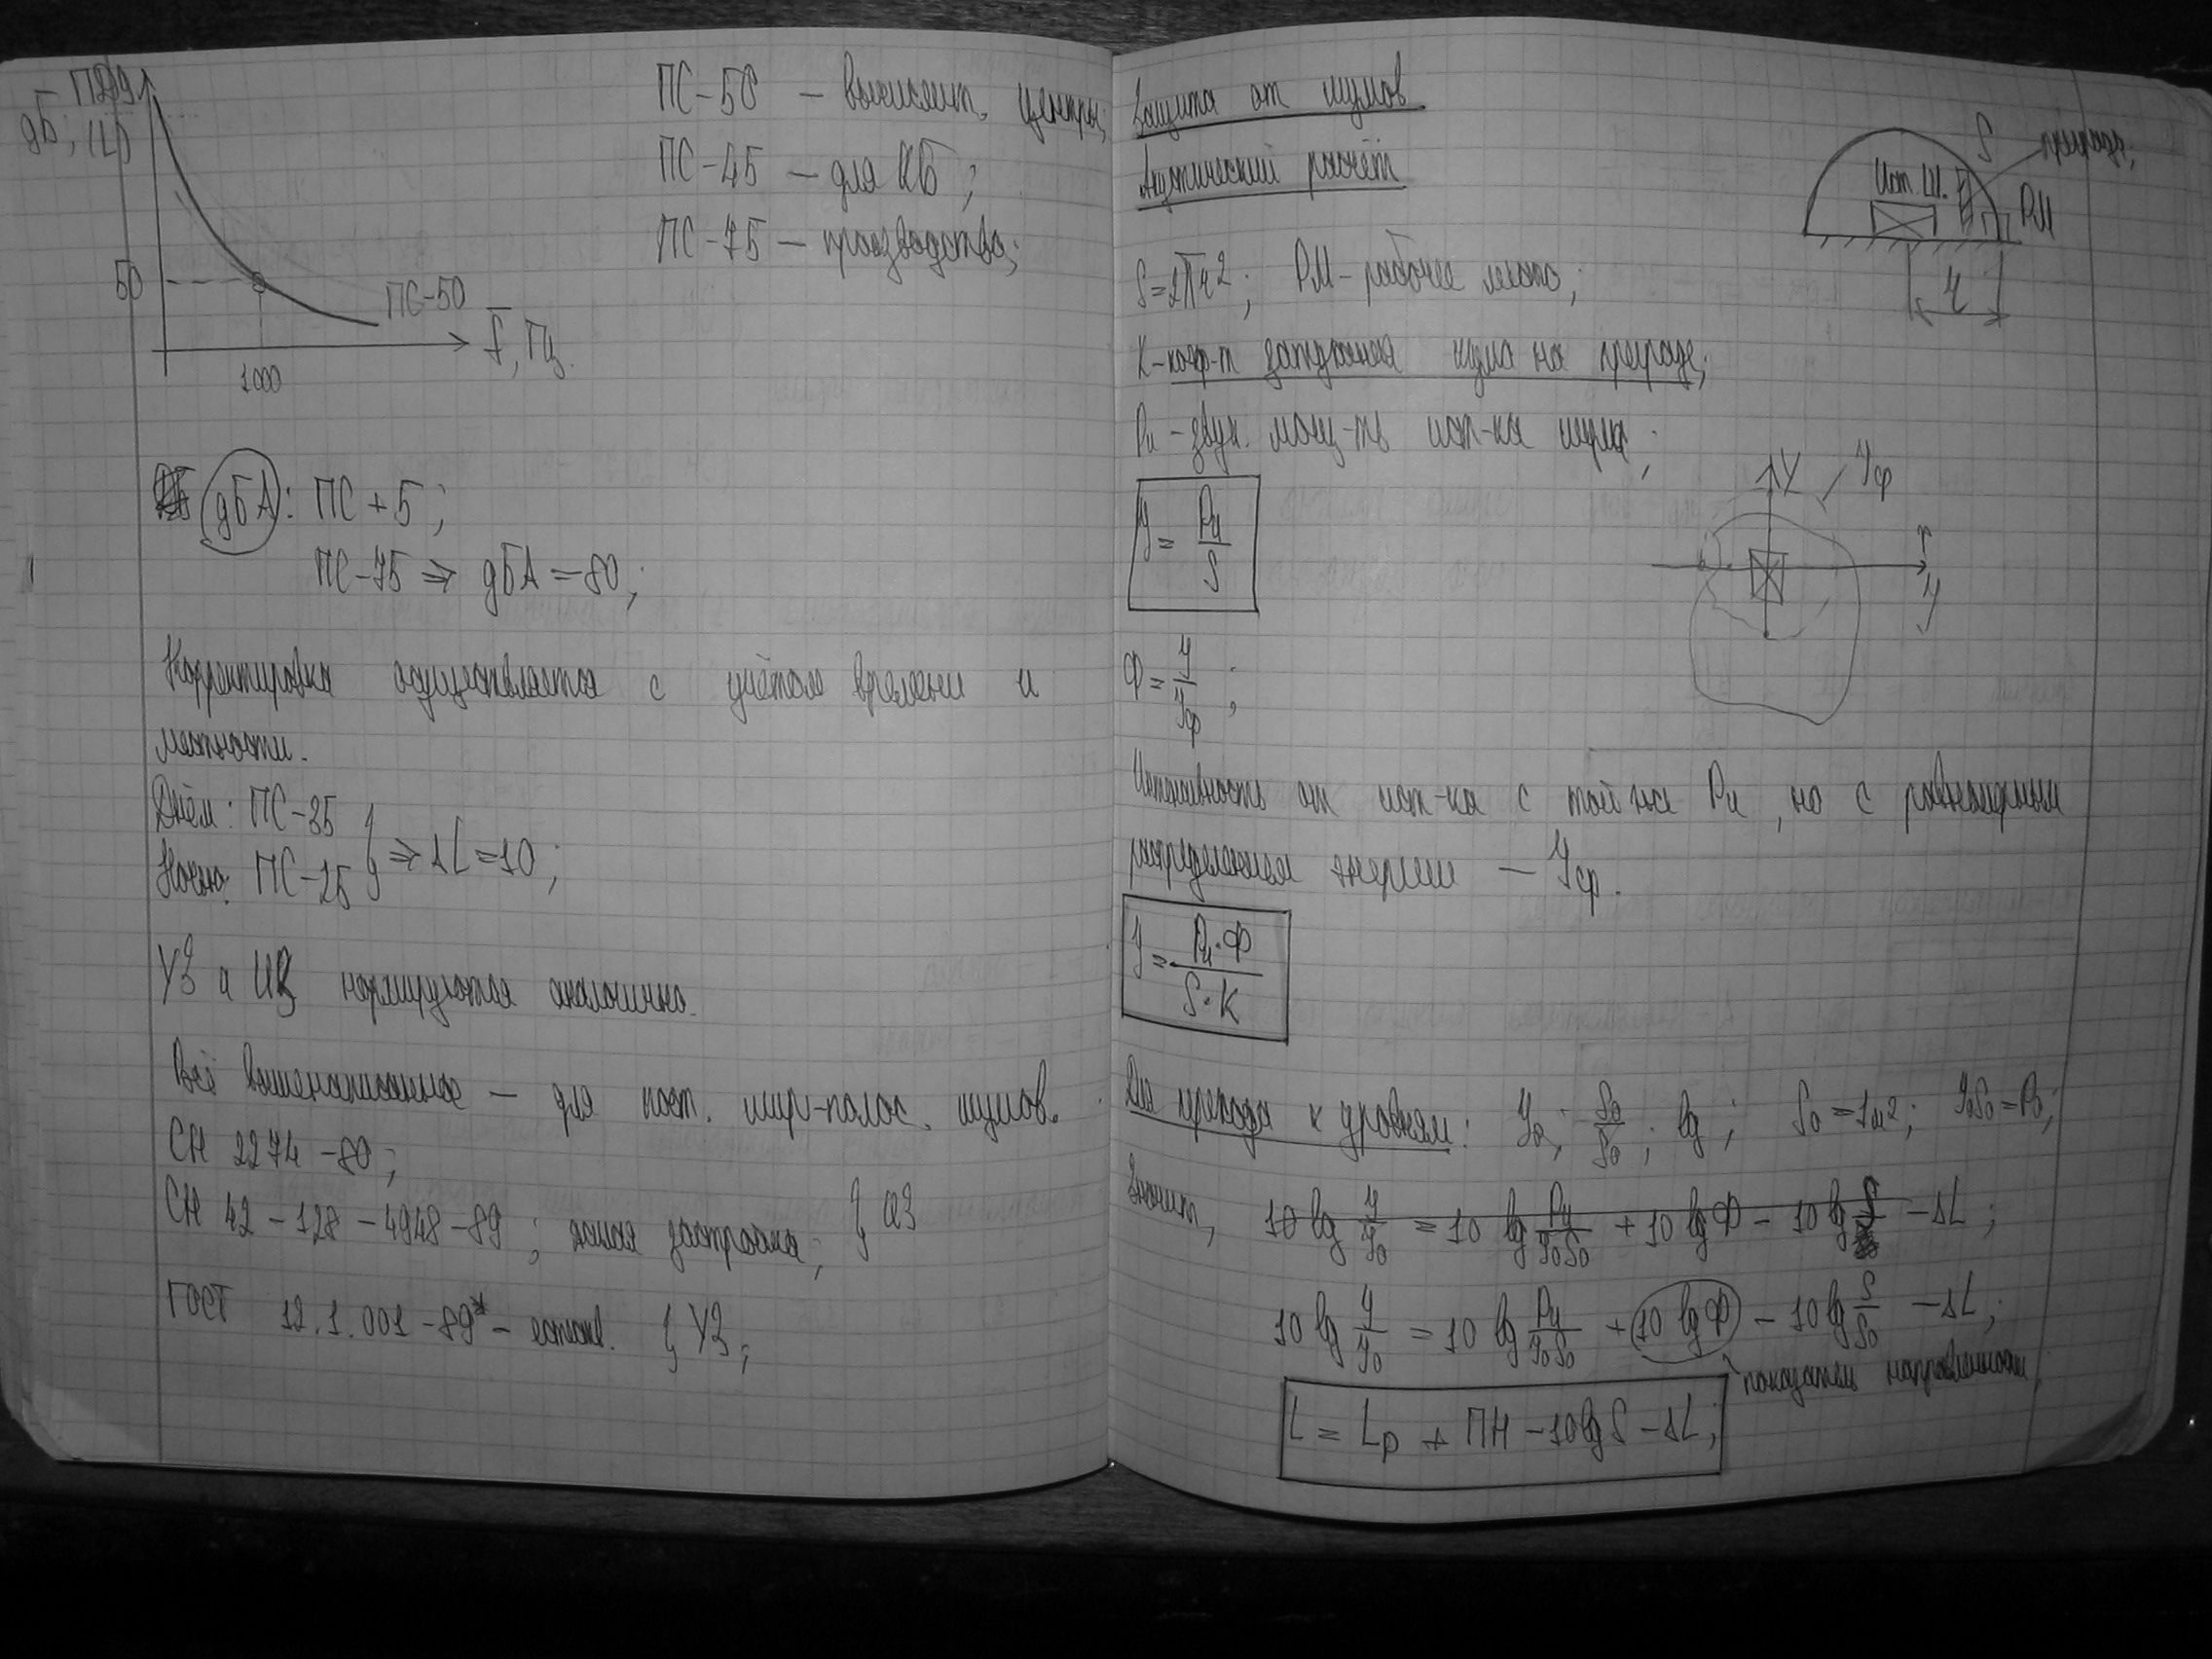 дБ; (L)
50
1000
ПС-50
f, Гц.
ПС-50 – вычислит. центры;
ПС-45 – для КБ;
ПС-75 – производство;
дБА: ПС + 5;
ПС-75 ⇒ дБА = 80;
Корректировка осуществляется с учётом времени и
местности.
Днём: ПС-35
Ночью: ПС-25 } ⇒ ΔL = 10;
УЗ и ИЗ нормируются аналогично.
Всё вышенаписанное – для пост. шир-полос. шумов.
СН 2274-80;
СН 42-128-4948-89; жилая застройка; }
ГОСТ 12.1.001-89* – } УЗ;
Защита от шумов
Акустический расчёт
Ист. Ш.
S
преграда;
РМ
r
S = 2πr²; РМ – рабочее место;
К – коэф-т затухания шума на преграде;
Pи – звук. мощ-ть ист-ка шума;
У = Pи / S
У
Уср
r
У
Ф = У / Уср;
Интенсивность от ист-ка с той же Pи, но с равномерным
распределением энергии – Уср.
У = Pи·Ф / S·К
Для перехода к уровням: У₀; S₀/S₀; lg; S₀ = 1м²; У₀S₀ = P₀;
Значит, 10 lg У/У₀ = 10 lg Pи/У₀S₀ + 10 lg Ф – 10 lg S – ΔL;
10 lg У/У₀ = 10 lg Pи/У₀S₀ + 10 lg Ф – 10 lg S/S₀ – ΔL;
показатель направленности
L = Lp + ПН – 10 lg S – ΔL;